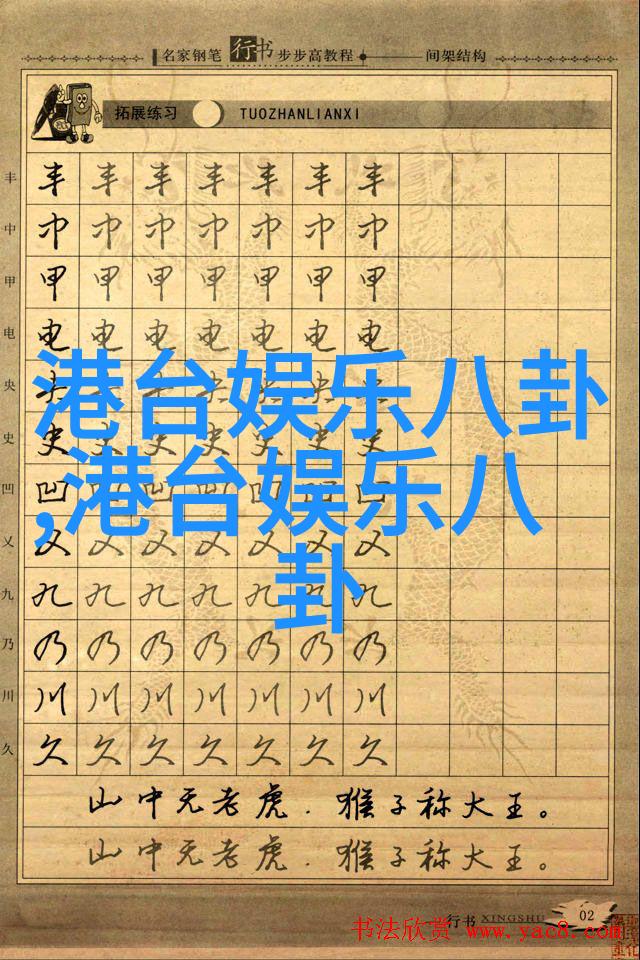 名家钢笔行书步步高教程 间架结构
拓展练习 TUOZHANLIANXI
丰 丰 丰 丰 丰 丰 丰 丰
中 中 中 中 中 中 中 中
甲 甲 甲 甲 甲 甲 甲 甲
电 电 电 电 电 电 电 电
央 央 央 央 央 央 央 央
史 史 史 史 史 史 史 史
凹 凹 凹 凹 凹 凹 凹 凹
乂 乂 乂 乂 乂 乂 乂 乂
九 九 九 九 九 九 九 九
乃 乃 乃 乃 乃 乃 乃 乃
川 川 川 川 川 川 川 川
久 久 久 久 久 久 久 久
港台娱乐八卦
,港台娱乐八
卦
山中无老虎.猴子称大王。
山中无老虎.猴子称大王。
行书 XINGSHU 02
书法欣赏 www.yac8.com